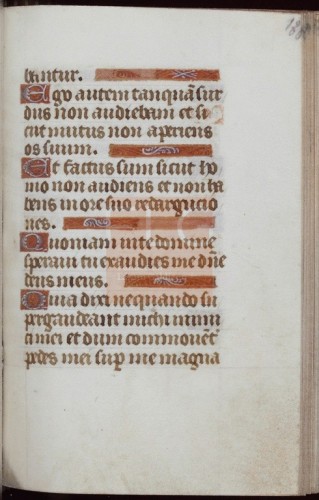 bantur.
Ego autem tanquā sur
dus non audiebam et si
cut mutus non aperiens
os suum.
Et factus sum sicut ho
mo non audiens et non ha
bens in ore suo redargucio
nes.
Quoniam in te domine
speravi tu exaudies me dn̄e
deus meus.
Quia dixi nequando su
pergaudeant michi inimi
ci mei et dum commovent̄
pedes mei sup̄ me magna